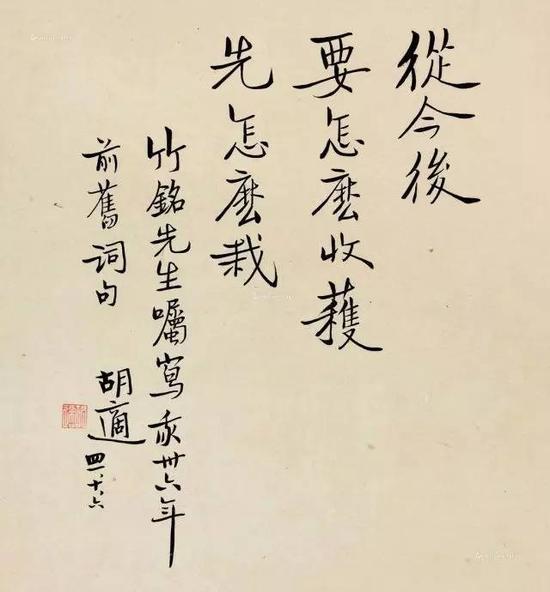 從今後
要怎麽收穫
先怎麽栽
竹銘先生囑寫我卅六年
前舊詞句
胡適 四一、十、六